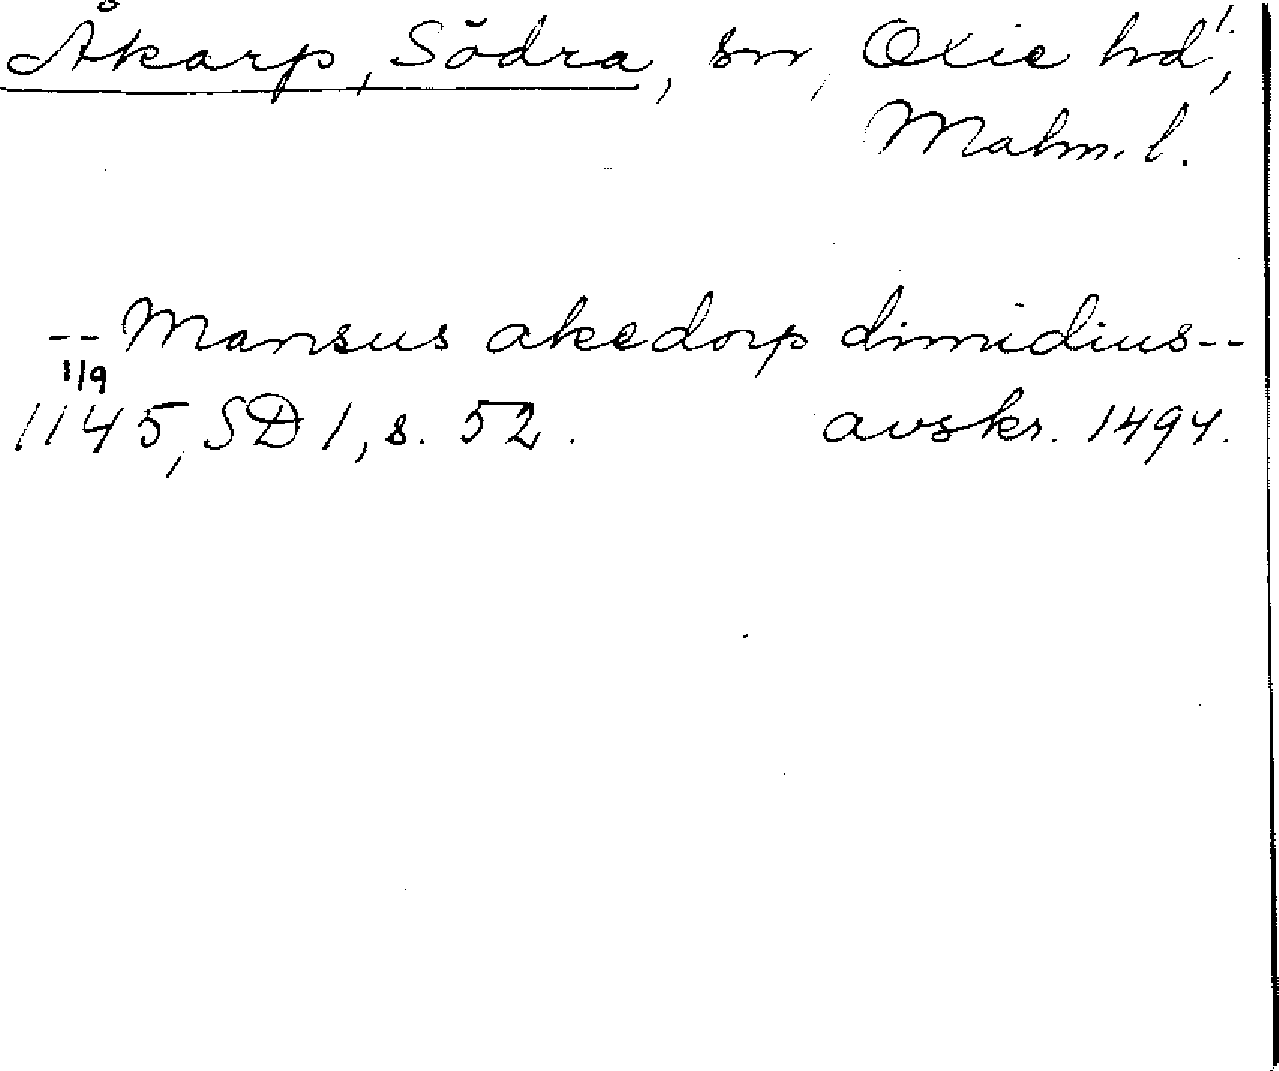 Åkarp, Södra, sn, Oxie hd!,
Malm. l.
-- Mansus akedorp dimidius --
1/9
1145, SD 1, s. 52. avskr. 1494.